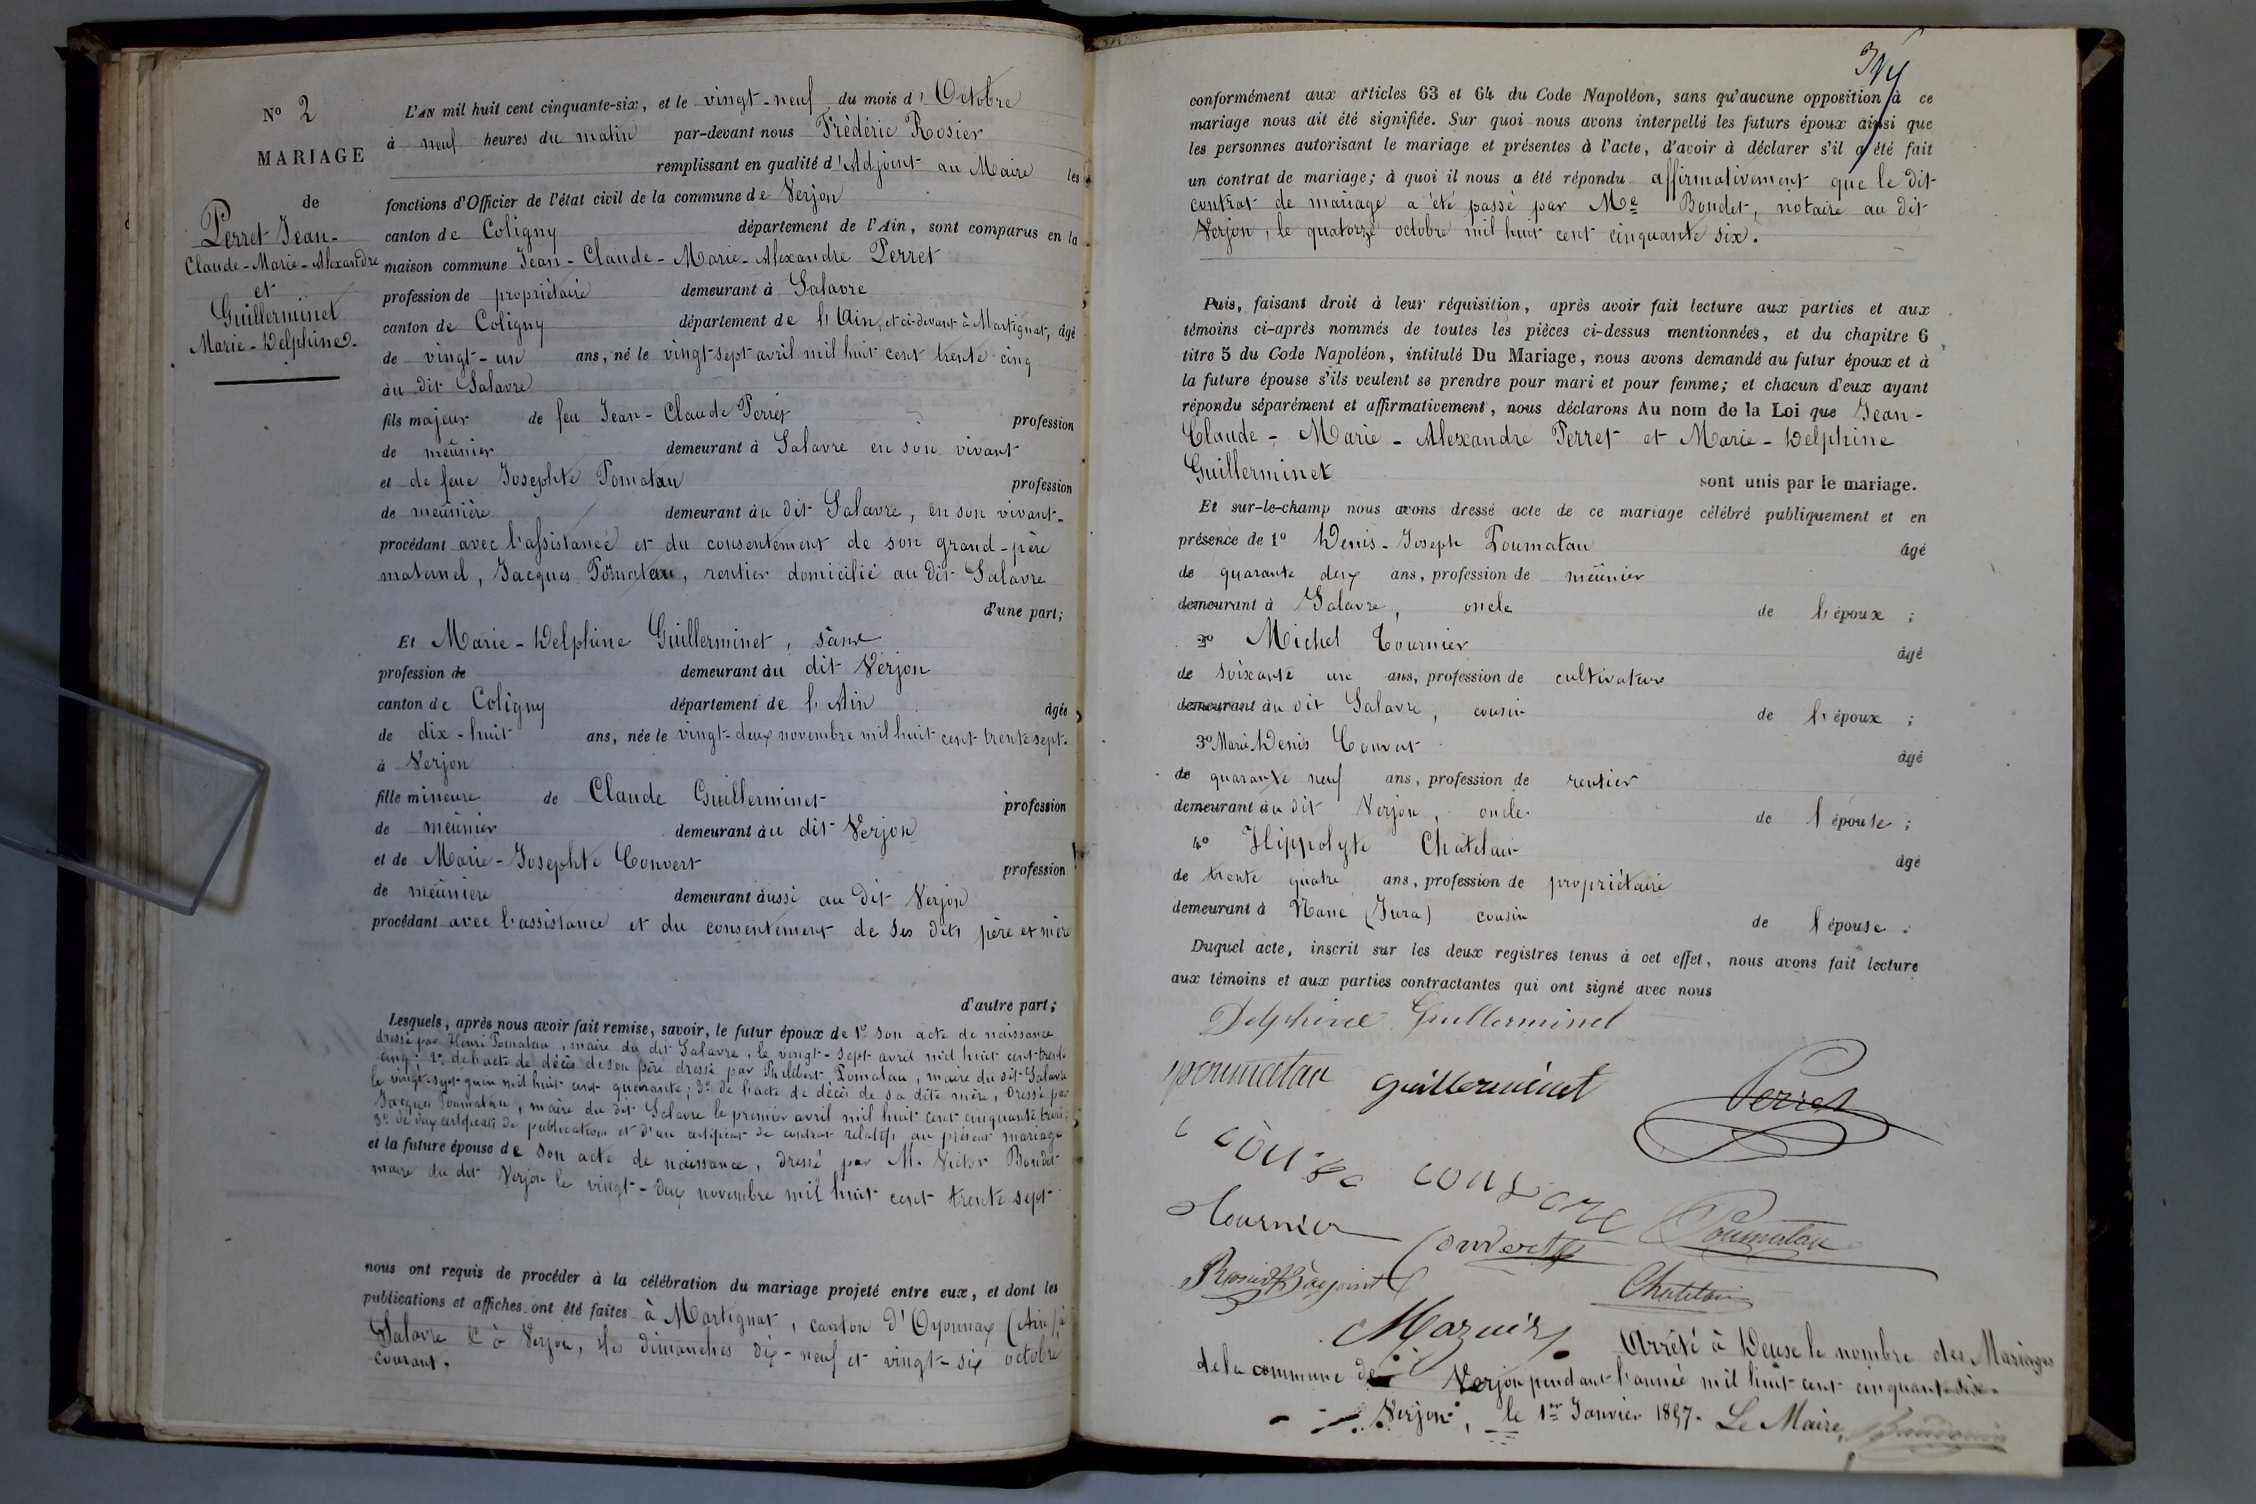 Nº 2
MARIAGE
de
Perret Jean-
Claude-Marie-Alexandre
et
Guillerminet
Marie-Delphine.
L'AN mil huit cent cinquante-six, et le vingt-neuf du mois d'Octobre
à neuf heures du matin par-devant nous Frédéric Rosier
remplissant en qualité d'Adjoint au Maire les
fonctions d'Officier de l'état civil de la commune de Verjon
canton de Coligny département de l'Ain, sont comparus en la
maison commune Jean-Claude-Marie-Alexandre Perret
profession de propriétaire demeurant à Salavre
canton de Coligny département de l'Ain, et ci-devant à Martignat, âgé
de vingt-un ans, né le vingt-sept avril mil huit cent trente cinq
au dit Salavre
fils majeur de feu Jean-Claude Perret profession
de meûnier demeurant à Salavre en son vivant
et de feue Josephte Pomatau profession
de meûnière demeurant au dit Salavre, en son vivant-
procédant avec l'assistance et du consentement de son grand-père
maternel, Jacques Pomatau, rentier domicilié au dit Salavre
d'une part;
Et Marie-Delphine Guillerminet, sans
profession de demeurant au dit Verjon
canton de Coligny département de l'Ain âgée
de dix-huit ans, née le vingt-deux novembre mil huit cent trente sept-
à Verjon
fille mineure de Claude Guillerminet profession
de meûnier demeurant au dit Verjon
et de Marie-Josephte Convert profession
de meûnière demeurant aussi au dit Verjon
procédant avec l'assistance et du consentement de ses dits père et mère
d'autre part;
Lesquels, après nous avoir fait remise, savoir, le futur époux de 1º son acte de naissance
dressé par Henri Pomatau, maire du dit Salavre, le vingt-sept avril mil huit cent trente
cinq; 2º de l'acte de décès de son père dressé par Philibert Pomatau, maire du dit Salavre
le vingt-sept juin mil huit cent quarante; 3º de l'acte de décès de sa dite mère, dressé par
Jacques Poumatau, maire du dit Salavre le premier avril mil huit cent cinquante trois;
3º de deux certificats de publication et d'un certificat de contrat relatifs au présent mariage
et la future épouse de son acte de naissance, dressé par M. Victor Boudet
maire du dit Verjon le vingt-deux novembre mil huit cent trente sept
nous ont requis de procéder à la célébration du mariage projeté entre eux, et dont les
publications et affiches ont été faites à Martignat, canton d'Oyonnax (Ain), à
Salavre & à Verjon, les dimanches dix-neuf et vingt-six octobre
courant.
conformément aux articles 63 et 64 du Code Napoléon, sans qu'aucune opposition à ce
mariage nous ait été signifiée. Sur quoi nous avons interpellé les futurs époux ainsi que
les personnes autorisant le mariage et présentes à l'acte, d'avoir à déclarer s'il a été fait
un contrat de mariage; à quoi il nous a été répondu affirmativement que le dit
contrat de mariage a été passé par Me Boudet, notaire au dit
Verjon, le quatorze octobre mil huit cent cinquante six.
Puis, faisant droit à leur réquisition, après avoir fait lecture aux parties et aux
témoins ci-après nommés de toutes les pièces ci-dessus mentionnées, et du chapitre 6
titre 5 du Code Napoléon, intitulé Du Mariage, nous avons demandé au futur époux et à
la future épouse s'ils veulent se prendre pour mari et pour femme; et chacun d'eux ayant
répondu séparément et affirmativement, nous déclarons Au nom de la Loi que Jean-
Claude-Marie-Alexandre Perret et Marie-Delphine
Guillerminet sont unis par le mariage.
Et sur-le-champ nous avons dressé acte de ce mariage célébré publiquement et en
présence de 1º Denis-Joseph Poumatau âgé
de quarante deux ans, profession de meûnier
demeurant à Salavre, oncle de l'époux;
2º Michel Tournier âgé
de soixante un ans, profession de cultivateur
demeurant au dit Salavre, cousin de l'époux;
3º Marie Denis Convert âgé
de quarante neuf ans, profession de rentier
demeurant au dit Verjon, oncle de l'épouse;
4º Hippolyte Chatelain âgé
de trente quatre ans, profession de propriétaire
demeurant à Nanc (Jura) cousin de l'épouse.
Duquel acte, inscrit sur les deux registres tenus à cet effet, nous avons fait lecture
aux témoins et aux parties contractantes qui ont signé avec nous
Delphine Guillerminet
poumatau guillerminet Perret
Tournier Convert Poumatau
Rosier adjoint Chatelain
Arrêté à Deux le nombre des Mariages
de la commune de Verjon pendant l'année mil huit cent cinquante six.
Verjon, le 1er Janvier 1857. Le Maire,